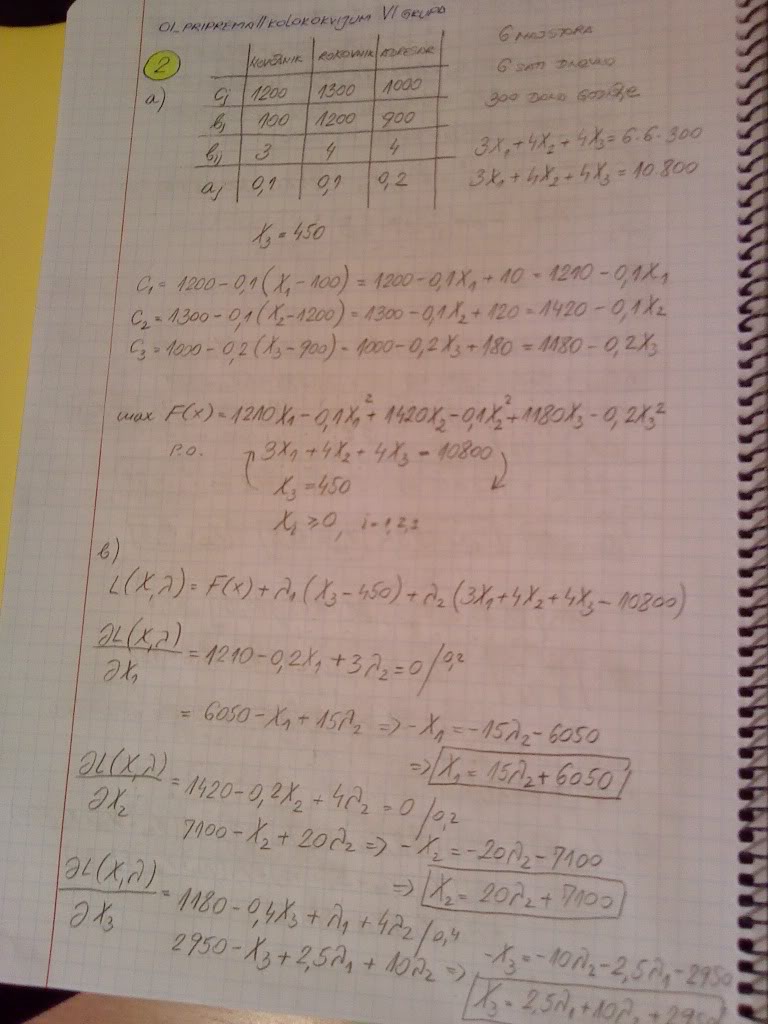 OI_PRIPREMA // KOLOKOKVIJUM VI GRUPA
2
a)
NOVČANIK ROKOVNIK ADRESAR
Cj 1200 1300 1000
bj 100 1200 900
bij 3 4 4
aj 0,1 0,1 0,2
6 MAJSTORA
6 SATI DNEVNO
300 DANA GODIŠNJE
3X₁+4X₂+4X₃=6·6·300
3X₁+4X₂+4X₃=10.800
X₃=450
C₁=1200-0,1(X₁-100)=1200-0,1X₁+10=1210-0,1X₁
C₂=1300-0,1(X₂-1200)=1300-0,1X₂+120=1420-0,1X₂
C₃=1000-0,2(X₃-900)-1000-0,2X₃+180=1180-0,2X₃
max F(x)=1210X₁-0,1X₁²+1420X₂-0,1X₂²+1180X₃-0,2X₃²
P.O. 3X₁+4X₂+4X₃=10800
X₃=450
Xi≥0, i=1,2,3
b)
L(X,λ)=F(x)+λ₁(X₃-450)+λ₂(3X₁+4X₂+4X₃-10800)
∂L(X,λ)/∂X₁=1210-0,2X₁+3λ₂=0/0,2
=6050-X₁+15λ₂ => -X₁=-15λ₂-6050
=> X₁=15λ₂+6050
∂L(X,λ)/∂X₂=1420-0,2X₂+4λ₂=0/0,2
7100-X₂+20λ₂ => -X₂=-20λ₂-7100
=> X₂=20λ₂+7100
∂L(X,λ)/∂X₃=1180-0,4X₃+λ₁+4λ₂/0,4
2950-X₃+2,5λ₁+10λ₂ => -X₃=-10λ₂-2,5λ₁-2950
X₃=2,5λ₁+10λ₂+2950